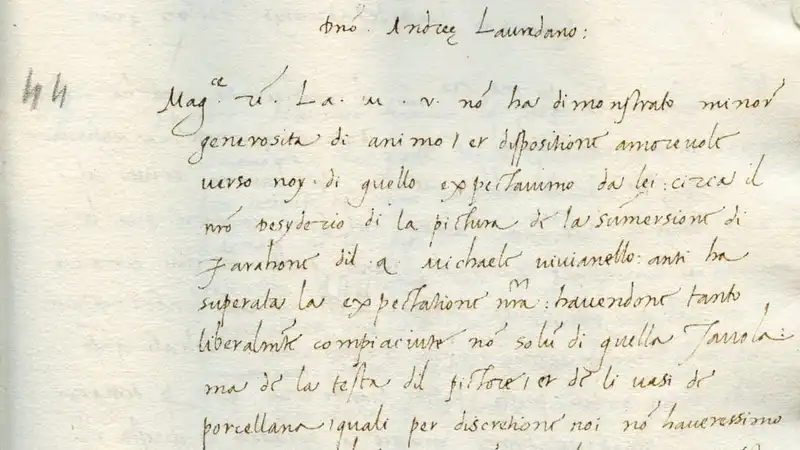 Dno. Andreę Lauredano:
44
Magce. re. La. m. v. nō ha dimonstrato minor
generosita di animo / et dispositione amorevole
verso noy. di quello expectavimo da lei: circa il
nrō desyderio di la pictura de la sūmersione di
Farahone dil q. Michaele vivianello: anti ha
superata la expectatione nrā: havendone tanto
liberalmte compiaciute nō solū di quella Tavola:
ma de la testa dil pictore / et de li vasi de
porcellana / quali per discretione noi nō haveressimo